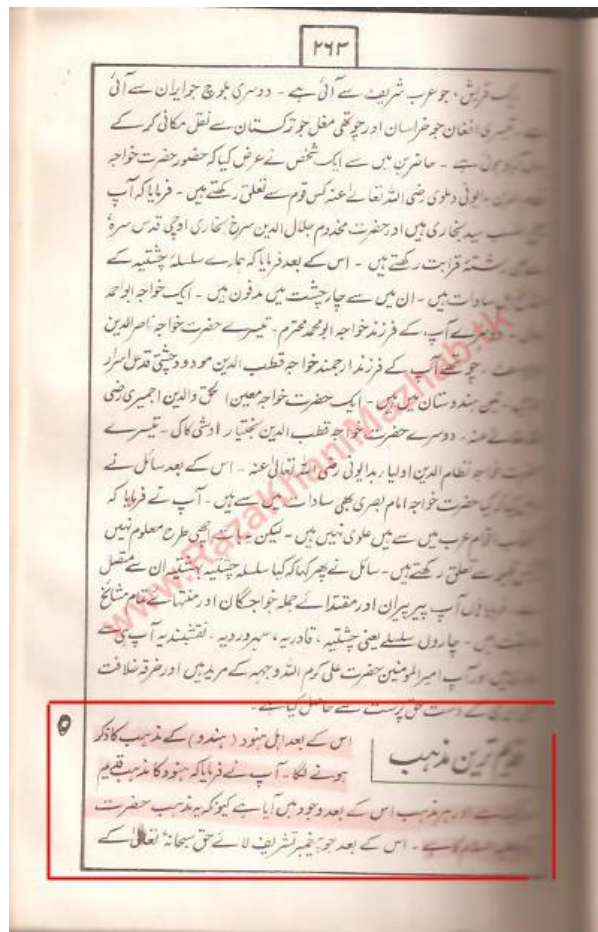 ۲۶۳
قریش، جو عرب شریف سے آئی ہے - دوسری بلوچ جو ایران سے آئی
ہے - تیسری افغان جو خراسان اور چوتھی مغل جو ترکستان سے نقل مکانی کر کے
ہوئی ہے - حاضرین میں سے ایک شخص نے عرض کیا کہ حضور حضرت خواجہ
دہلوی رضی اللہ تعالےٰ عنہ کس قوم سے تعلق رکھتے ہیں - فرمایا کہ آپ
سید بخاری ہیں اور حضرت مخدوم جلال الدین سرخ بخاری اوچی قدس سرہٗ
رشتۂ قرابت رکھتے ہیں - اس کے بعد فرمایا کہ ہمارے سلسلۂ چشتیہ کے
سادات ہیں - ان میں سے چار چشت میں مدفون ہیں - ایک خواجہ ابو احمد
آپ کے فرزند خواجہ ابو محمد محترم - تیسرے حضرت خواجہ ناصر الدین
چوتھے آپ کے فرزند ارجمند خواجہ قطب الدین مودود چشتی قدس اسرار
تین ہندوستان میں ہیں - ایک حضرت خواجہ معین الحق والدین اجمیری رضی
عنہ - دوسرے حضرت خواجہ قطب الدین بختیار اوشی کاکی - تیسرے
خواجہ نظام الدین اولیا بدایونی رضی اللہ تعالیٰ عنہ - اس کے بعد سائل نے
کہ کیا حضرت خواجہ امام بصری بھی سادات میں سے ہیں - آپ نے فرمایا کہ
اقوام عرب میں سے ہیں علوی نہیں ہیں - لیکن یہ بات اچھی طرح معلوم نہیں
سے تعلق رکھتے ہیں - سائل نے پھر کہا کہ کیا سلسلہ چشتیہ بہشتیہ ان سے متصل
فرمایا ہاں آپ پیر پیران اور مقتدائے جملہ خواجگان اور منتہائے تمام مشائخ
ہیں - چاروں سلسلے یعنی چشتیہ، قادریہ، سہروردیہ، نقشبندیہ آپ ہی سے
اور آپ امیر المومنین حضرت علی کرم اللہ وجہہ کے مرید ہیں اور خرقہ خلافت
کے دست حق پرست سے حاصل کیا ہے -
قدیم ترین مذہب
اس کے بعد اہل ہنود (ہندو) کے مذہب کا ذکر
ہونے لگا - آپ نے فرمایا کہ ہنود کا مذہب قدیم
ہے اور ہر مذہب اس کے بعد وجود میں آیا ہے کیونکہ یہ مذہب حضرت
السلام کا ہے - اس کے بعد جو پیغمبر تشریف لائے حق سبحانہٗ تعالیٰ کے
www.RazaKhaniMazhab.tk